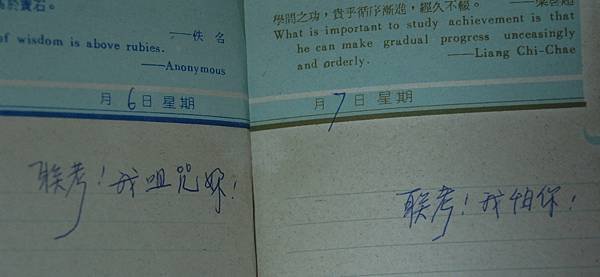 於寶石。
——佚 名
of wisdom is above rubies.
——Anonymous
月6日星期
联考!我咀咒妳!
學問之功，貴乎循序漸進，經久不輟。 ——梁啓超
What is important to study achievement is that
he can make gradual progress unceasingly
and orderly. ——Liang Chi-Chae
月7日星期
联考!我怕你!